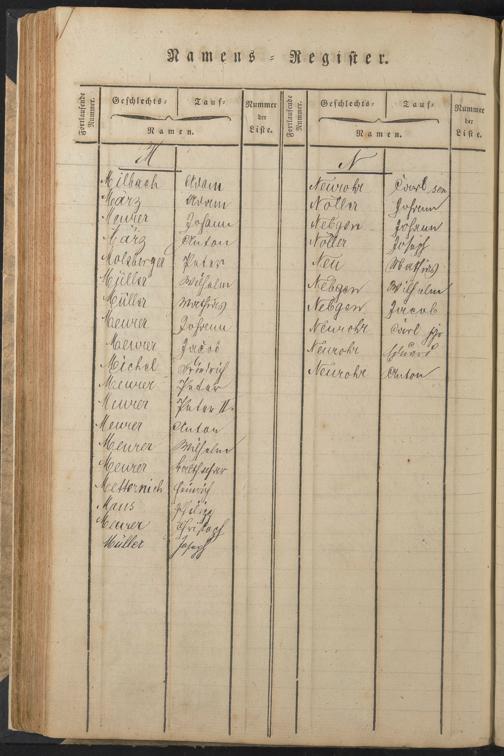 Namens-Register.
Fortlaufende Nummer.
Geschlechts-
Tauf-
Namen.
Nummer der Liste.
Fortlaufende Nummer.
Geschlechts-
Tauf-
Namen.
Nummer der Liste.
M
Milbach Adam
März Adam
Meurer Johann
März Anton
Molsberger Peter
Müller Wilhelm
Müller Mathias
Meurer Johann
Meurer Jacob
Michel Friedrich
Meurer Peter
Meurer Peter II.
Meurer Anton
Meurer Wilhelm
Meurer Balthasar
Metternich Heinrich
Maus Philipp
Meurer Christoph
Müller Joseph
N
Neurohr Carl sen
Nöller Johann
Nebgen Johann
Nöller Joseph
Neu Mathias
Nebgen Wilhelm
Nebgen Jacob
Neurohr Carl jgr
Neurohr Eduard
Neurohr Anton